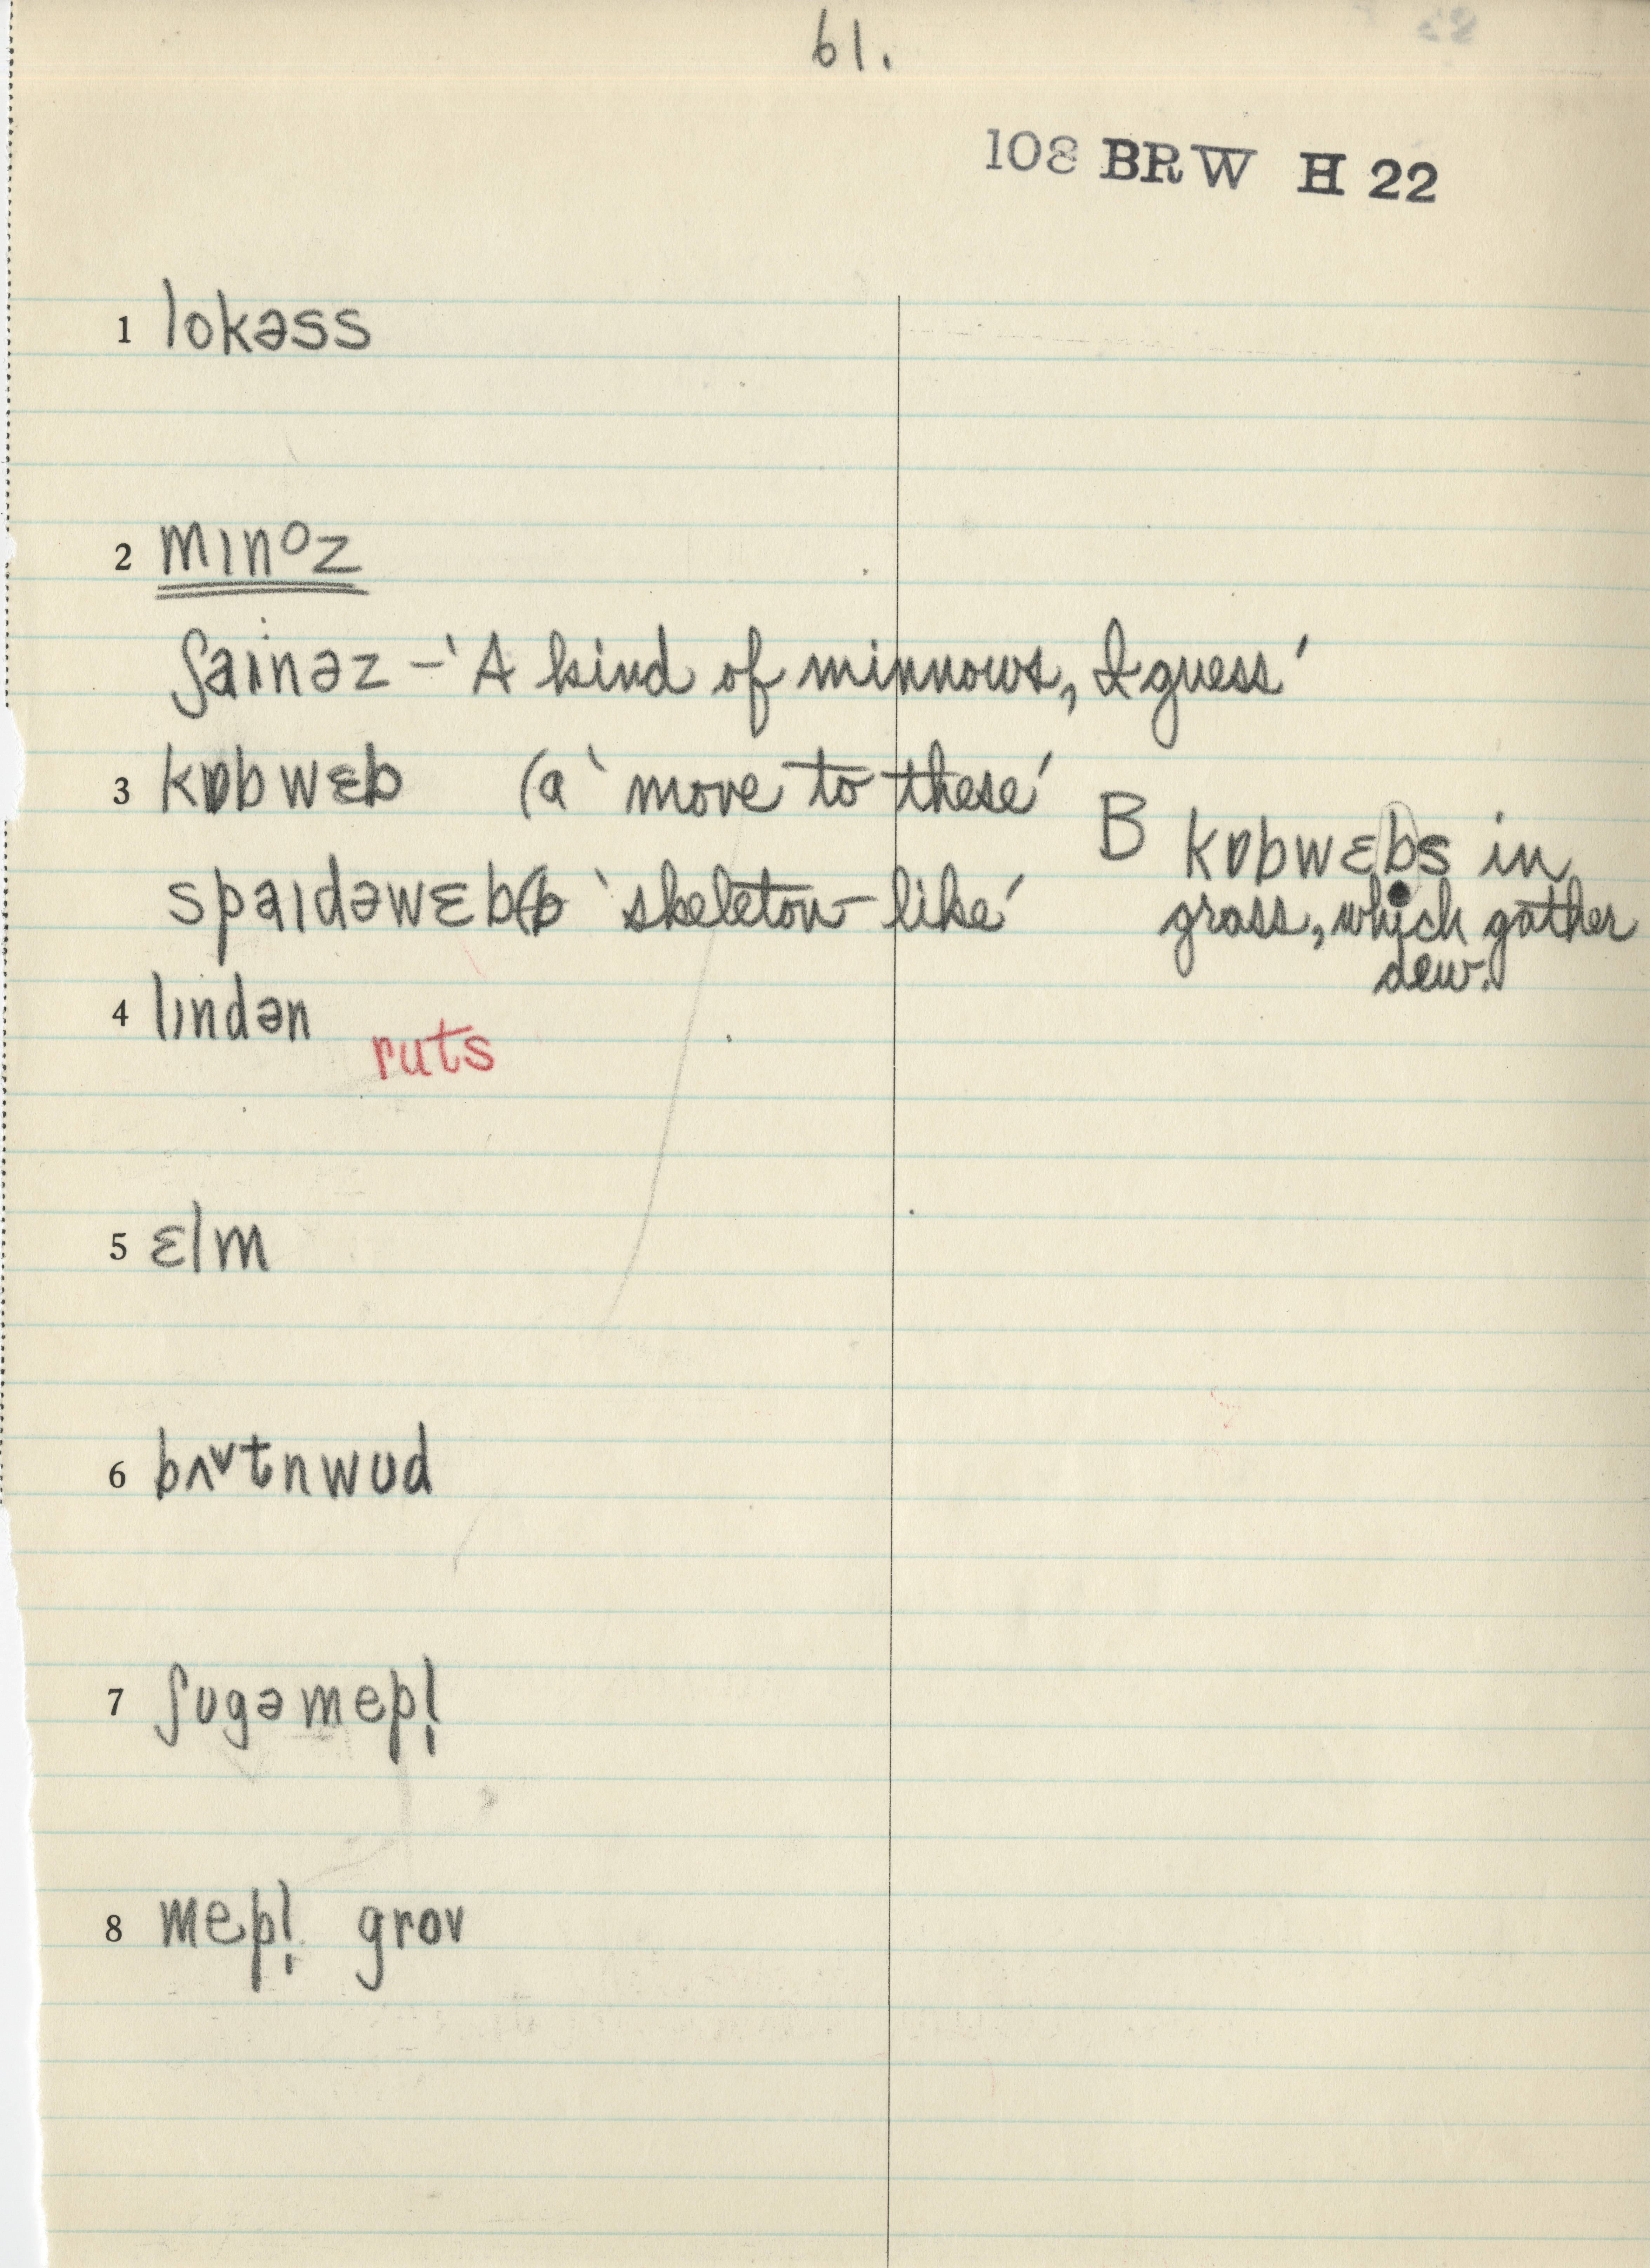 61.
108 BRW H 22
1 lokəss
2 mɪnoz
ʃaɪnəz – 'A kind of minnows, I guess'
3 kɒbwɛb (a 'move to these'
B kɒbwɛbs in
spaɪdəwɛb (b 'skeleton-like'
grass, which gather
dew.
4 lɪndən
ruts
5 ɛlm
6 bʌ˅tnwʊd
7 ʃʊgəmepl̩
8 mepl̩ grov